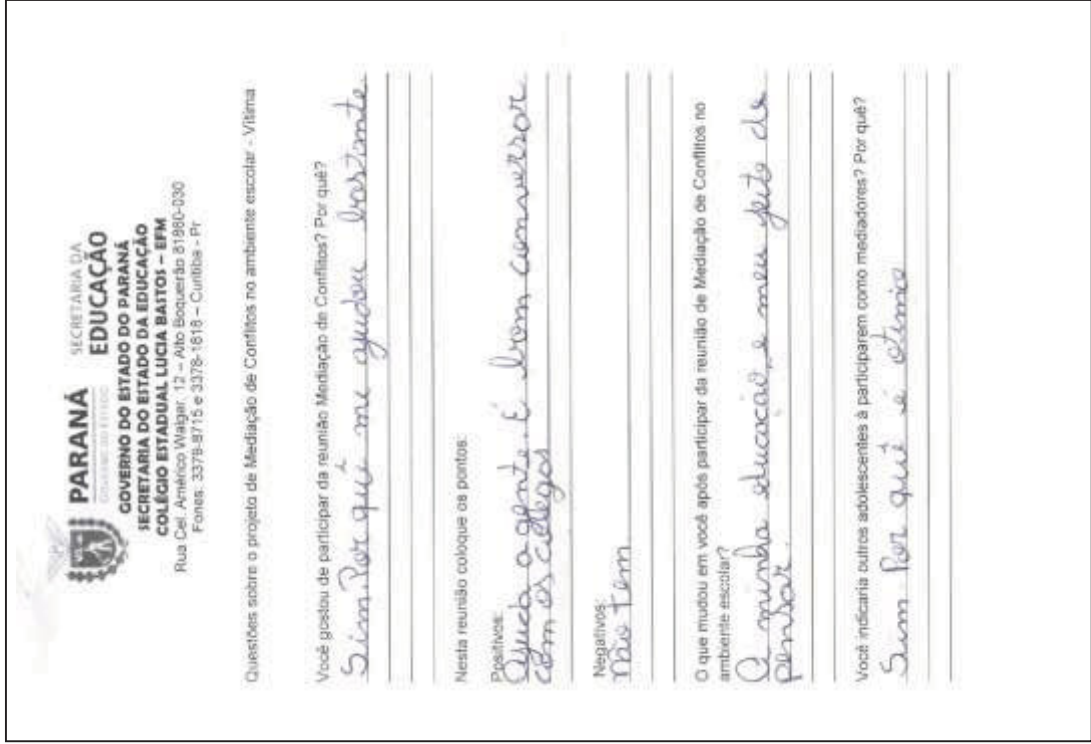 PARANÁ
GOVERNO DO ESTADO
SECRETARIA DA
EDUCAÇÃO
GOVERNO DO ESTADO DO PARANÁ
SECRETARIA DO ESTADO DA EDUCAÇÃO
COLÉGIO ESTADUAL LUCIA BASTOS – EFM
Rua Cel. Américo Walger, 12 – Alto Boqueirão 81860-030
Fones: 3378-8715 e 3378-1818 – Curitiba - Pr
Questões sobre o projeto de Mediação de Conflitos no ambiente escolar - Vítima
Você gostou de participar da reunião Mediação de Conflitos? Por quê?
Sim Por quê me ajudou bastante
Nesta reunião coloque os pontos:
Positivos:
Ajuda a gente. É bom conversar
com os colegas
Negativos:
não tem
O que mudou em você após participar da reunião de Mediação de Conflitos no
ambiente escolar?
A minha educação e meu jeito de
pensar.
Você indicaria outros adolescentes à participarem como mediadores? Por quê?
Sim Por quê é otimo